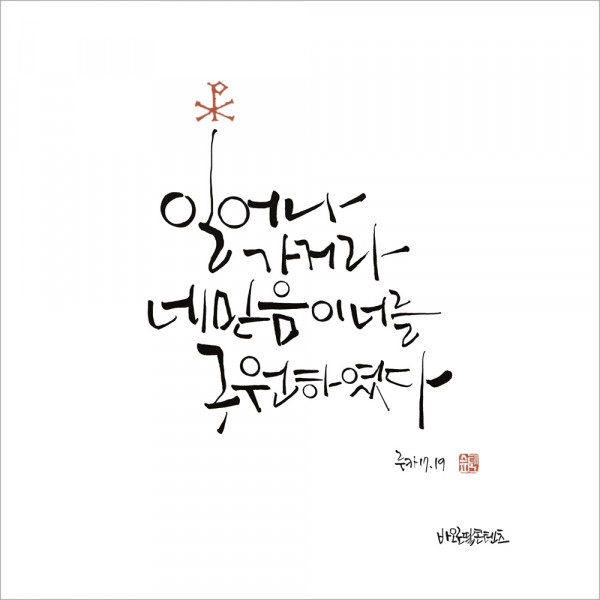 일어나
가거라
네 믿음이 너를
구원하였다
루카 17.19
바오로딸콘텐츠